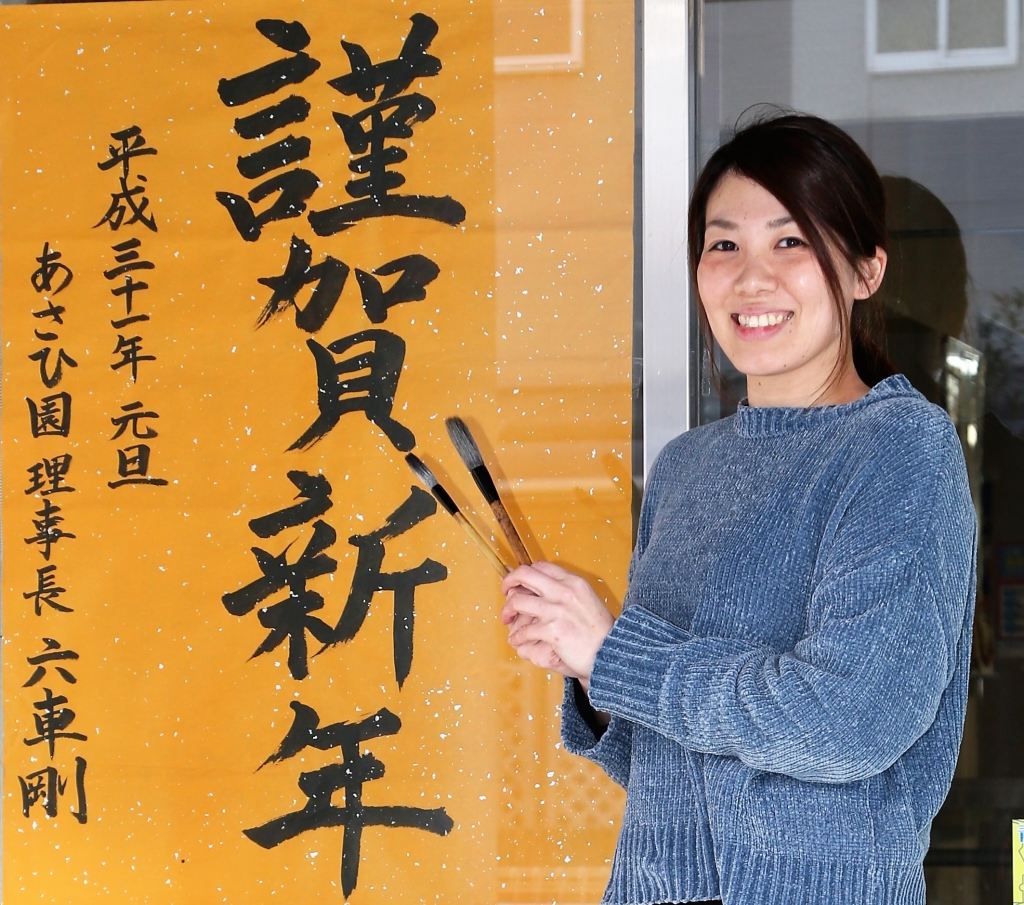 謹賀新年
平成三十一年 元旦
あさひ園 理事長 六車剛